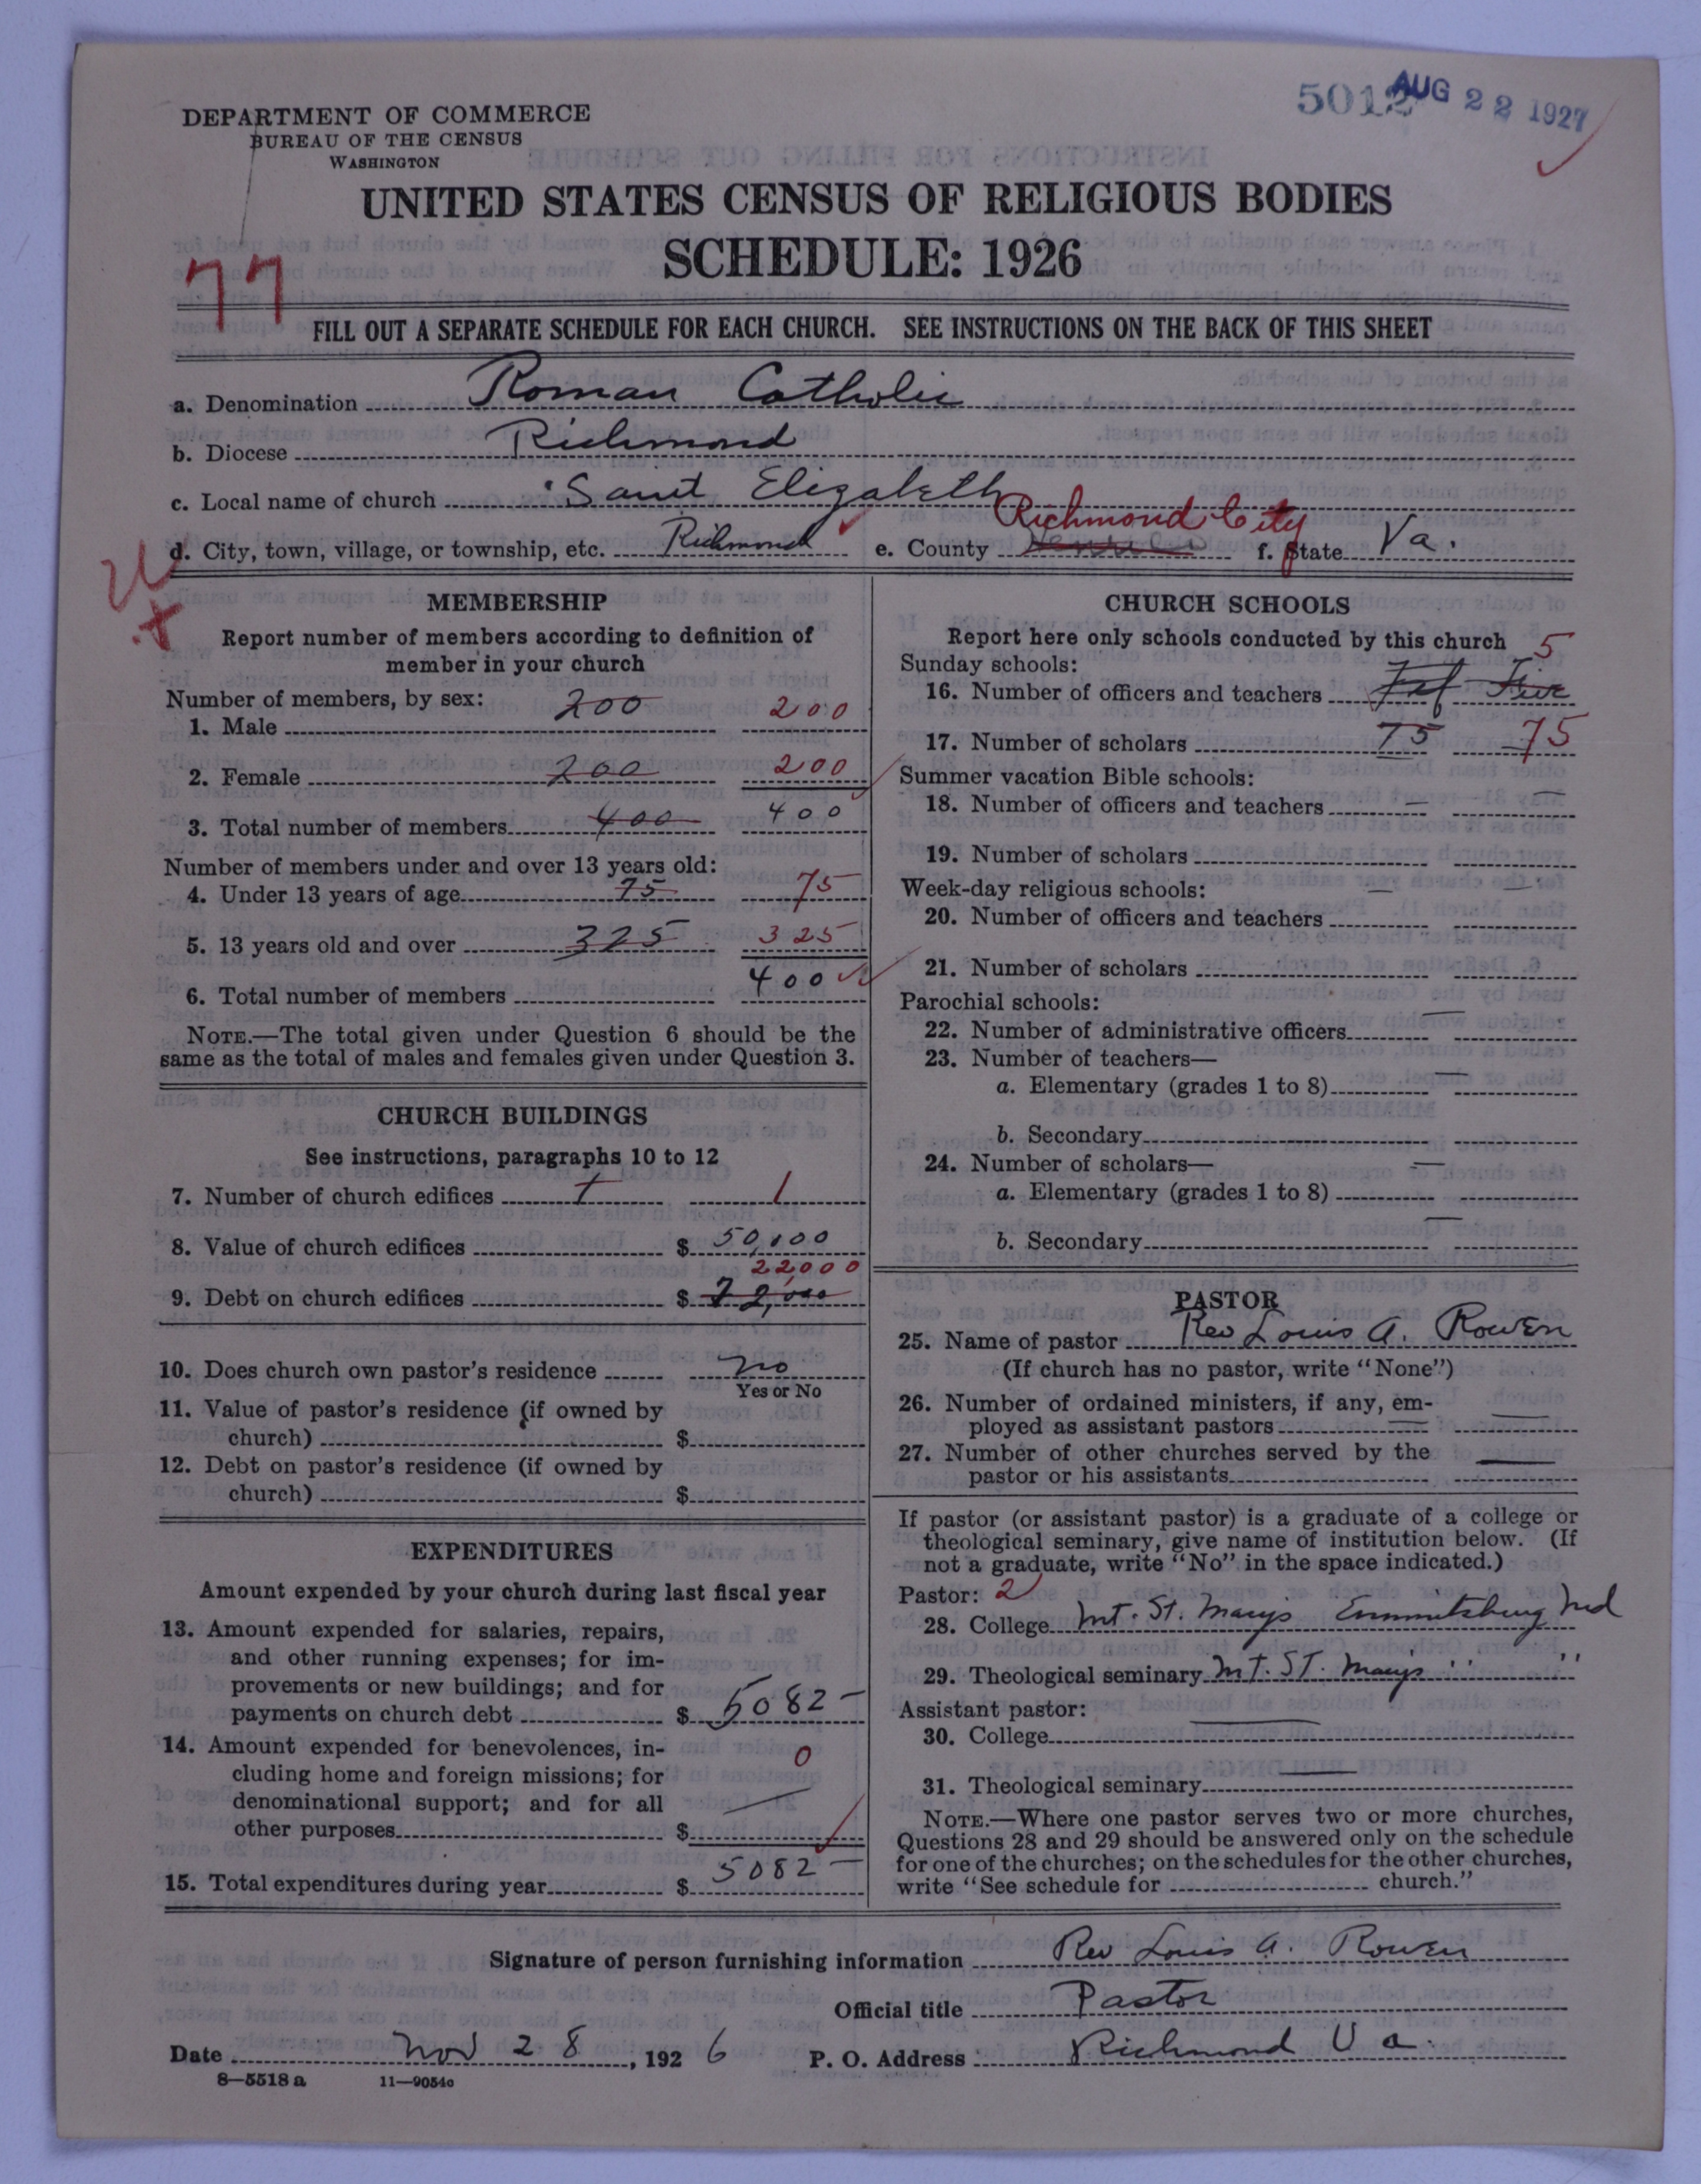 5012 AUG 22 1927
DEPARTMENT OF COMMERCE
BUREAU OF THE CENSUS
WASHINGTON
UNITED STATES CENSUS OF RELIGIOUS BODIES
SCHEDULE: 1926
77
FILL OUT A SEPARATE SCHEDULE FOR EACH CHURCH. SEE INSTRUCTIONS ON THE BACK OF THIS SHEET
a. Denomination Roman Catholic
b. Diocese Richmond
c. Local name of church Saint Elizabeth
d. City, town, village, or township, etc. Richmond e. County Richmond City f. State Va.
MEMBERSHIP
Report number of members according to definition of
member in your church
Number of members, by sex:
1. Male 200 200
2. Female 200 200
3. Total number of members 400 400
Number of members under and over 13 years old:
4. Under 13 years of age 75 75
5. 13 years old and over 325 325
6. Total number of members 400
NOTE.—The total given under Question 6 should be the
same as the total of males and females given under Question 3.
CHURCH BUILDINGS
See instructions, paragraphs 10 to 12
7. Number of church edifices 1 1
8. Value of church edifices $ 50,000
22000
9. Debt on church edifices $ 22,000
10. Does church own pastor's residence No
Yes or No
11. Value of pastor's residence (if owned by
church) $
12. Debt on pastor's residence (if owned by
church) $
EXPENDITURES
Amount expended by your church during last fiscal year
13. Amount expended for salaries, repairs,
and other running expenses; for im-
provements or new buildings; and for
payments on church debt $ 5082 —
14. Amount expended for benevolences, in-
cluding home and foreign missions; for 0
denominational support; and for all
other purposes $ —
15. Total expenditures during year $ 5082 —
CHURCH SCHOOLS
Report here only schools conducted by this church 5
Sunday schools:
16. Number of officers and teachers Five
17. Number of scholars 75 75
Summer vacation Bible schools:
18. Number of officers and teachers — —
19. Number of scholars
Week-day religious schools: — —
20. Number of officers and teachers
21. Number of scholars
Parochial schools: —
22. Number of administrative officers
23. Number of teachers—
a. Elementary (grades 1 to 8) —
b. Secondary
24. Number of scholars— —
a. Elementary (grades 1 to 8)
b. Secondary —
PASTOR
25. Name of pastor Rev Louis A. Rowen
(If church has no pastor, write "None")
26. Number of ordained ministers, if any, em-
ployed as assistant pastors — —
27. Number of other churches served by the
pastor or his assistants —
If pastor (or assistant pastor) is a graduate of a college or
theological seminary, give name of institution below. (If
not a graduate, write "No" in the space indicated.)
Pastor: 2
28. College Mt. St. Marys Emmitsburg Md
29. Theological seminary Mt. St. Marys " "
Assistant pastor:
30. College —
31. Theological seminary —
NOTE.—Where one pastor serves two or more churches,
Questions 28 and 29 should be answered only on the schedule
for one of the churches; on the schedules for the other churches,
write "See schedule for church."
Signature of person furnishing information Rev Louis A. Rowen
Official title Pastor
Date Nov 28, 1926 P. O. Address Richmond Va.
8—5518a 11—9054c